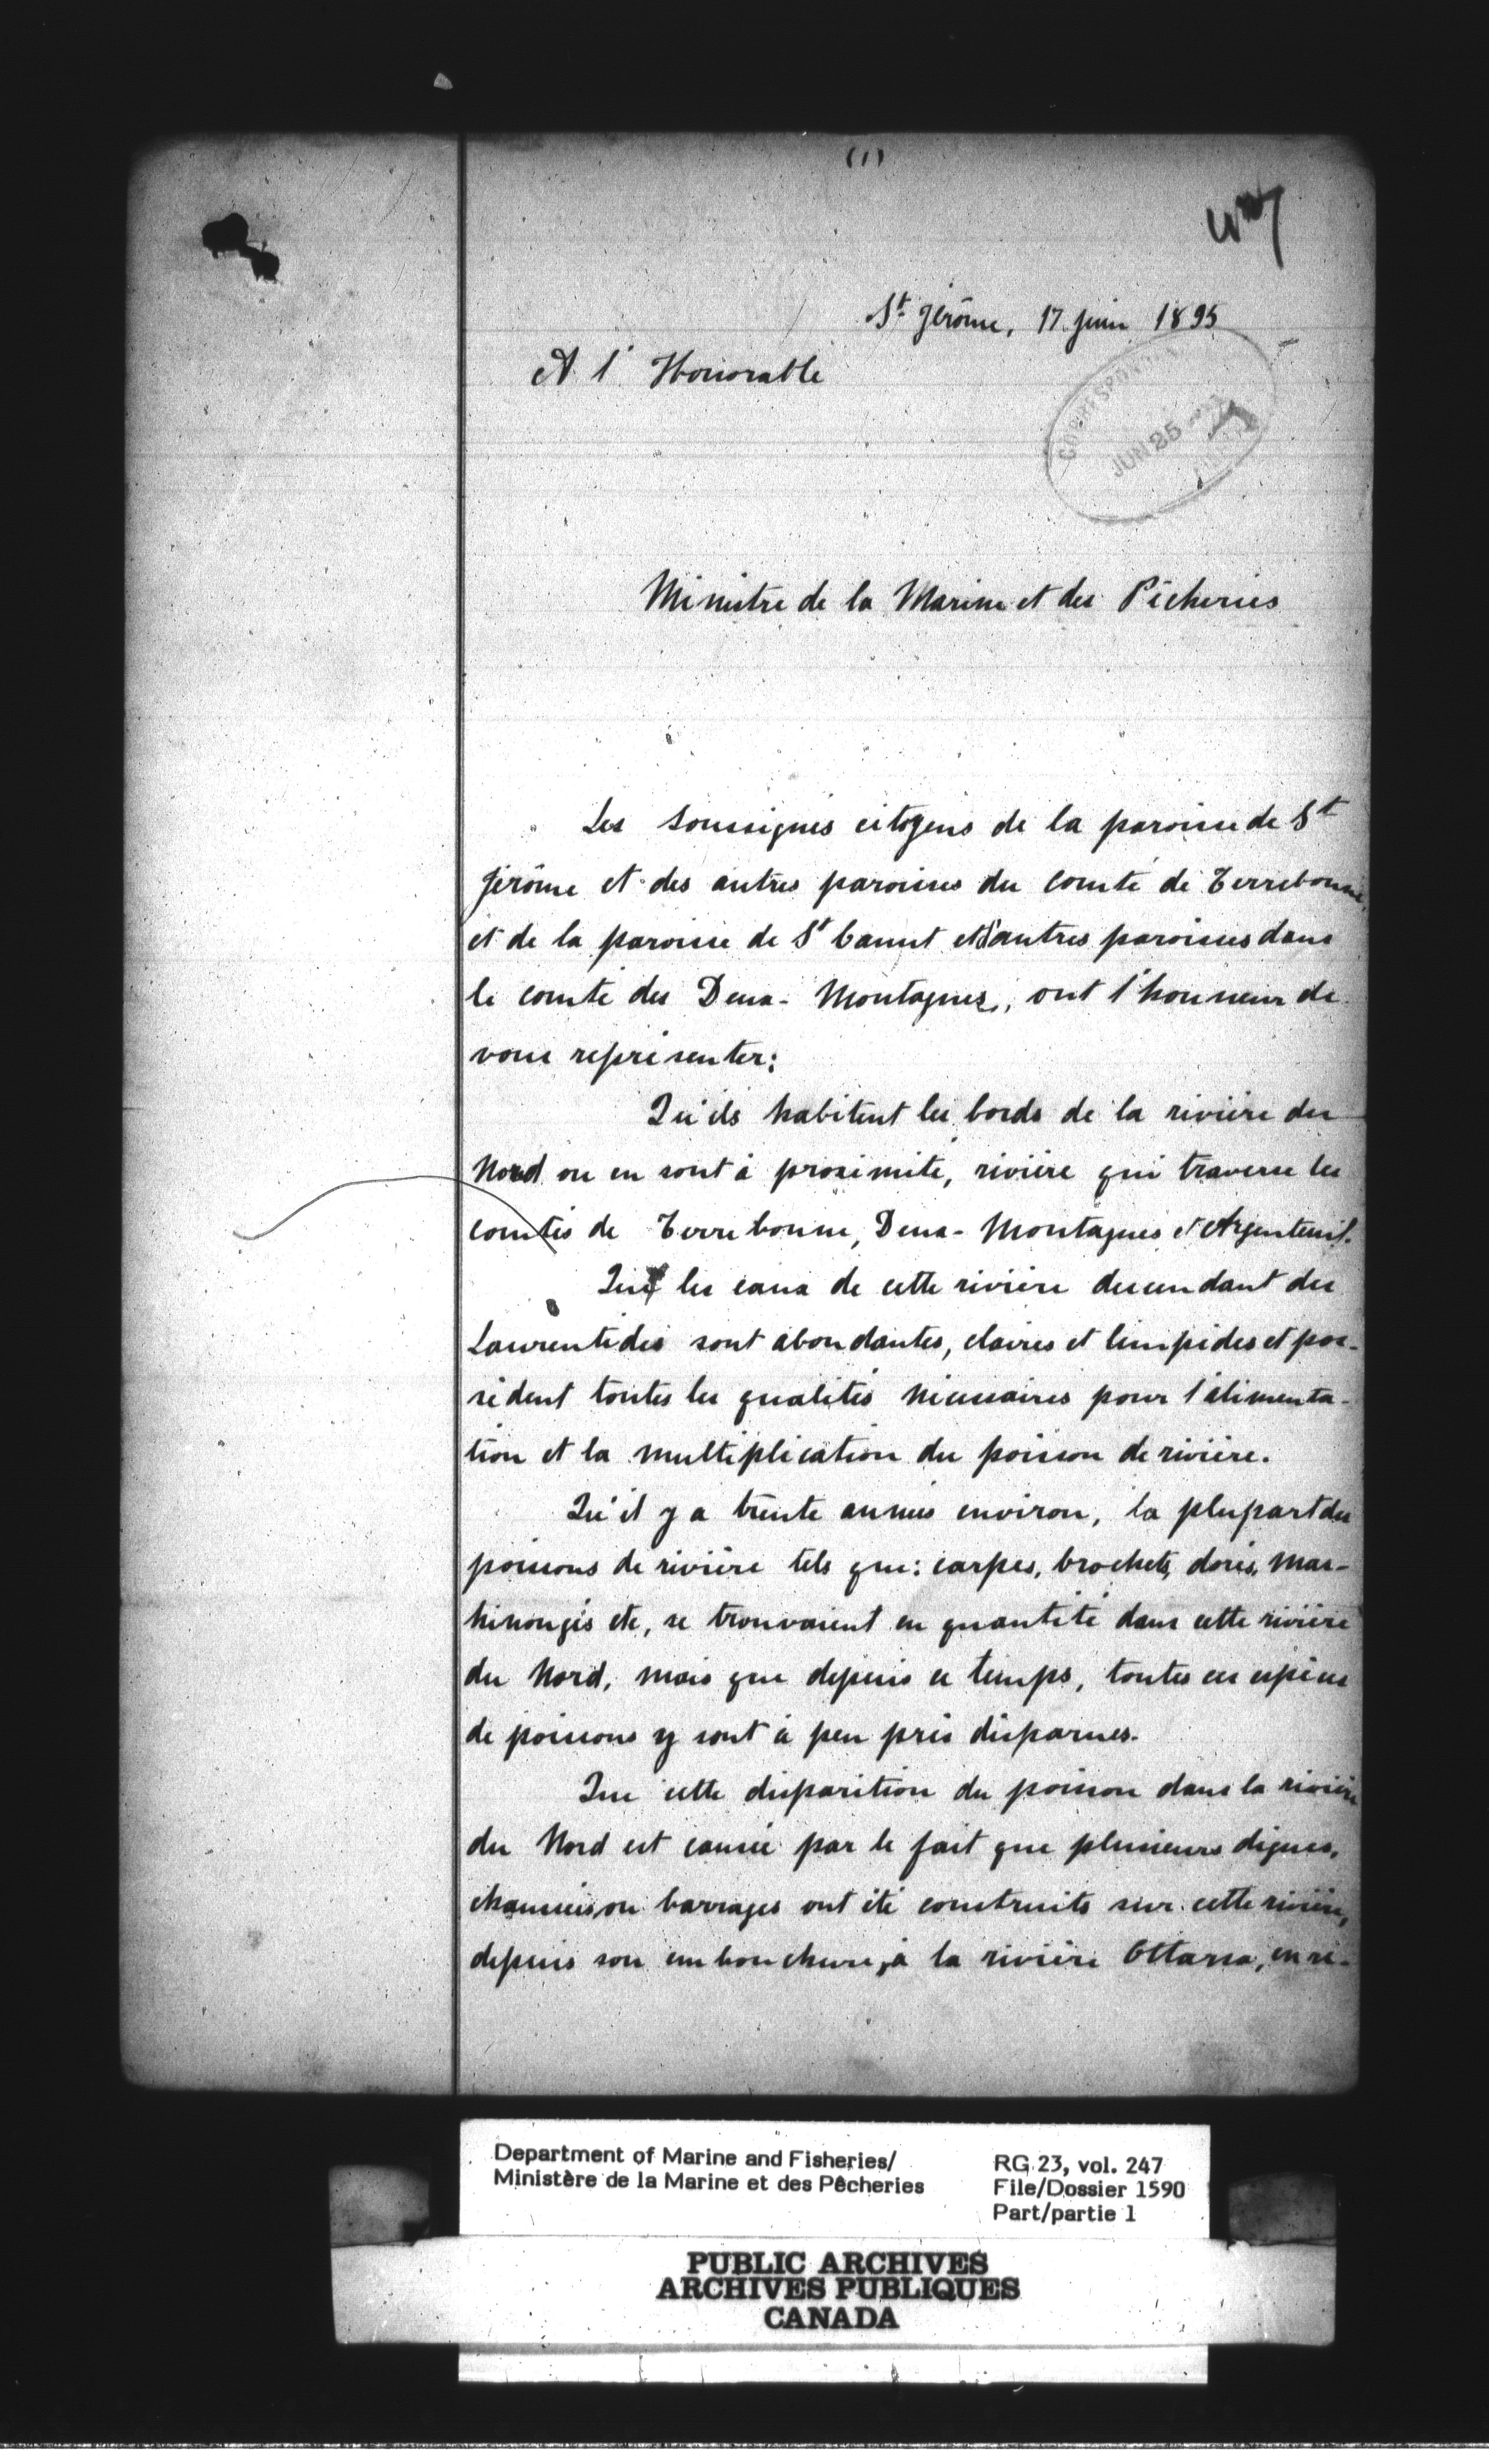 (1)
St Jérôme, 17 juin 1895
A l'Honorable
JUN 25
Ministre de la Marine et des Pêcheries
Les soussignés citoyens de la paroisse de St
Jérôme et des autres paroisses du comté de Terrebonne,
et de la paroisse de St Canut et d'autres paroisses dans
le comté des Deux-Montagnes, ont l'honneur de
vous représenter:
Qu'ils habitent les bords de la rivière du
Nord ou en sont à proximité, rivière qui traverse les
comtés de Terrebonne, Deux-Montagnes et Argenteuil.
Que les eaux de cette rivière descendant des
Laurentides sont abondantes, claires et limpides et pos-
sèdent toutes les qualités nécessaires pour l'alimenta-
tion et la multiplication du poisson de rivière.
Qu'il y a trente années environ, la plupart des
poissons de rivière tels que: carpes, brochets, dorés, mas-
kinongés etc, se trouvaient en quantité dans cette rivière
du Nord, mais que depuis ce temps, toutes ces espèces
de poissons y sont à peu près disparues.
Que cette disparition du poisson dans la rivière
du Nord est causée par le fait que plusieurs digues,
chaussées ou barrages ont été construits sur cette rivière,
depuis son embouchure, à la rivière Ottawa, en re-
Department of Marine and Fisheries/
Ministère de la Marine et des Pêcheries
RG 23, vol. 247
File/Dossier 1590
Part/partie 1
PUBLIC ARCHIVES
ARCHIVES PUBLIQUES
CANADA